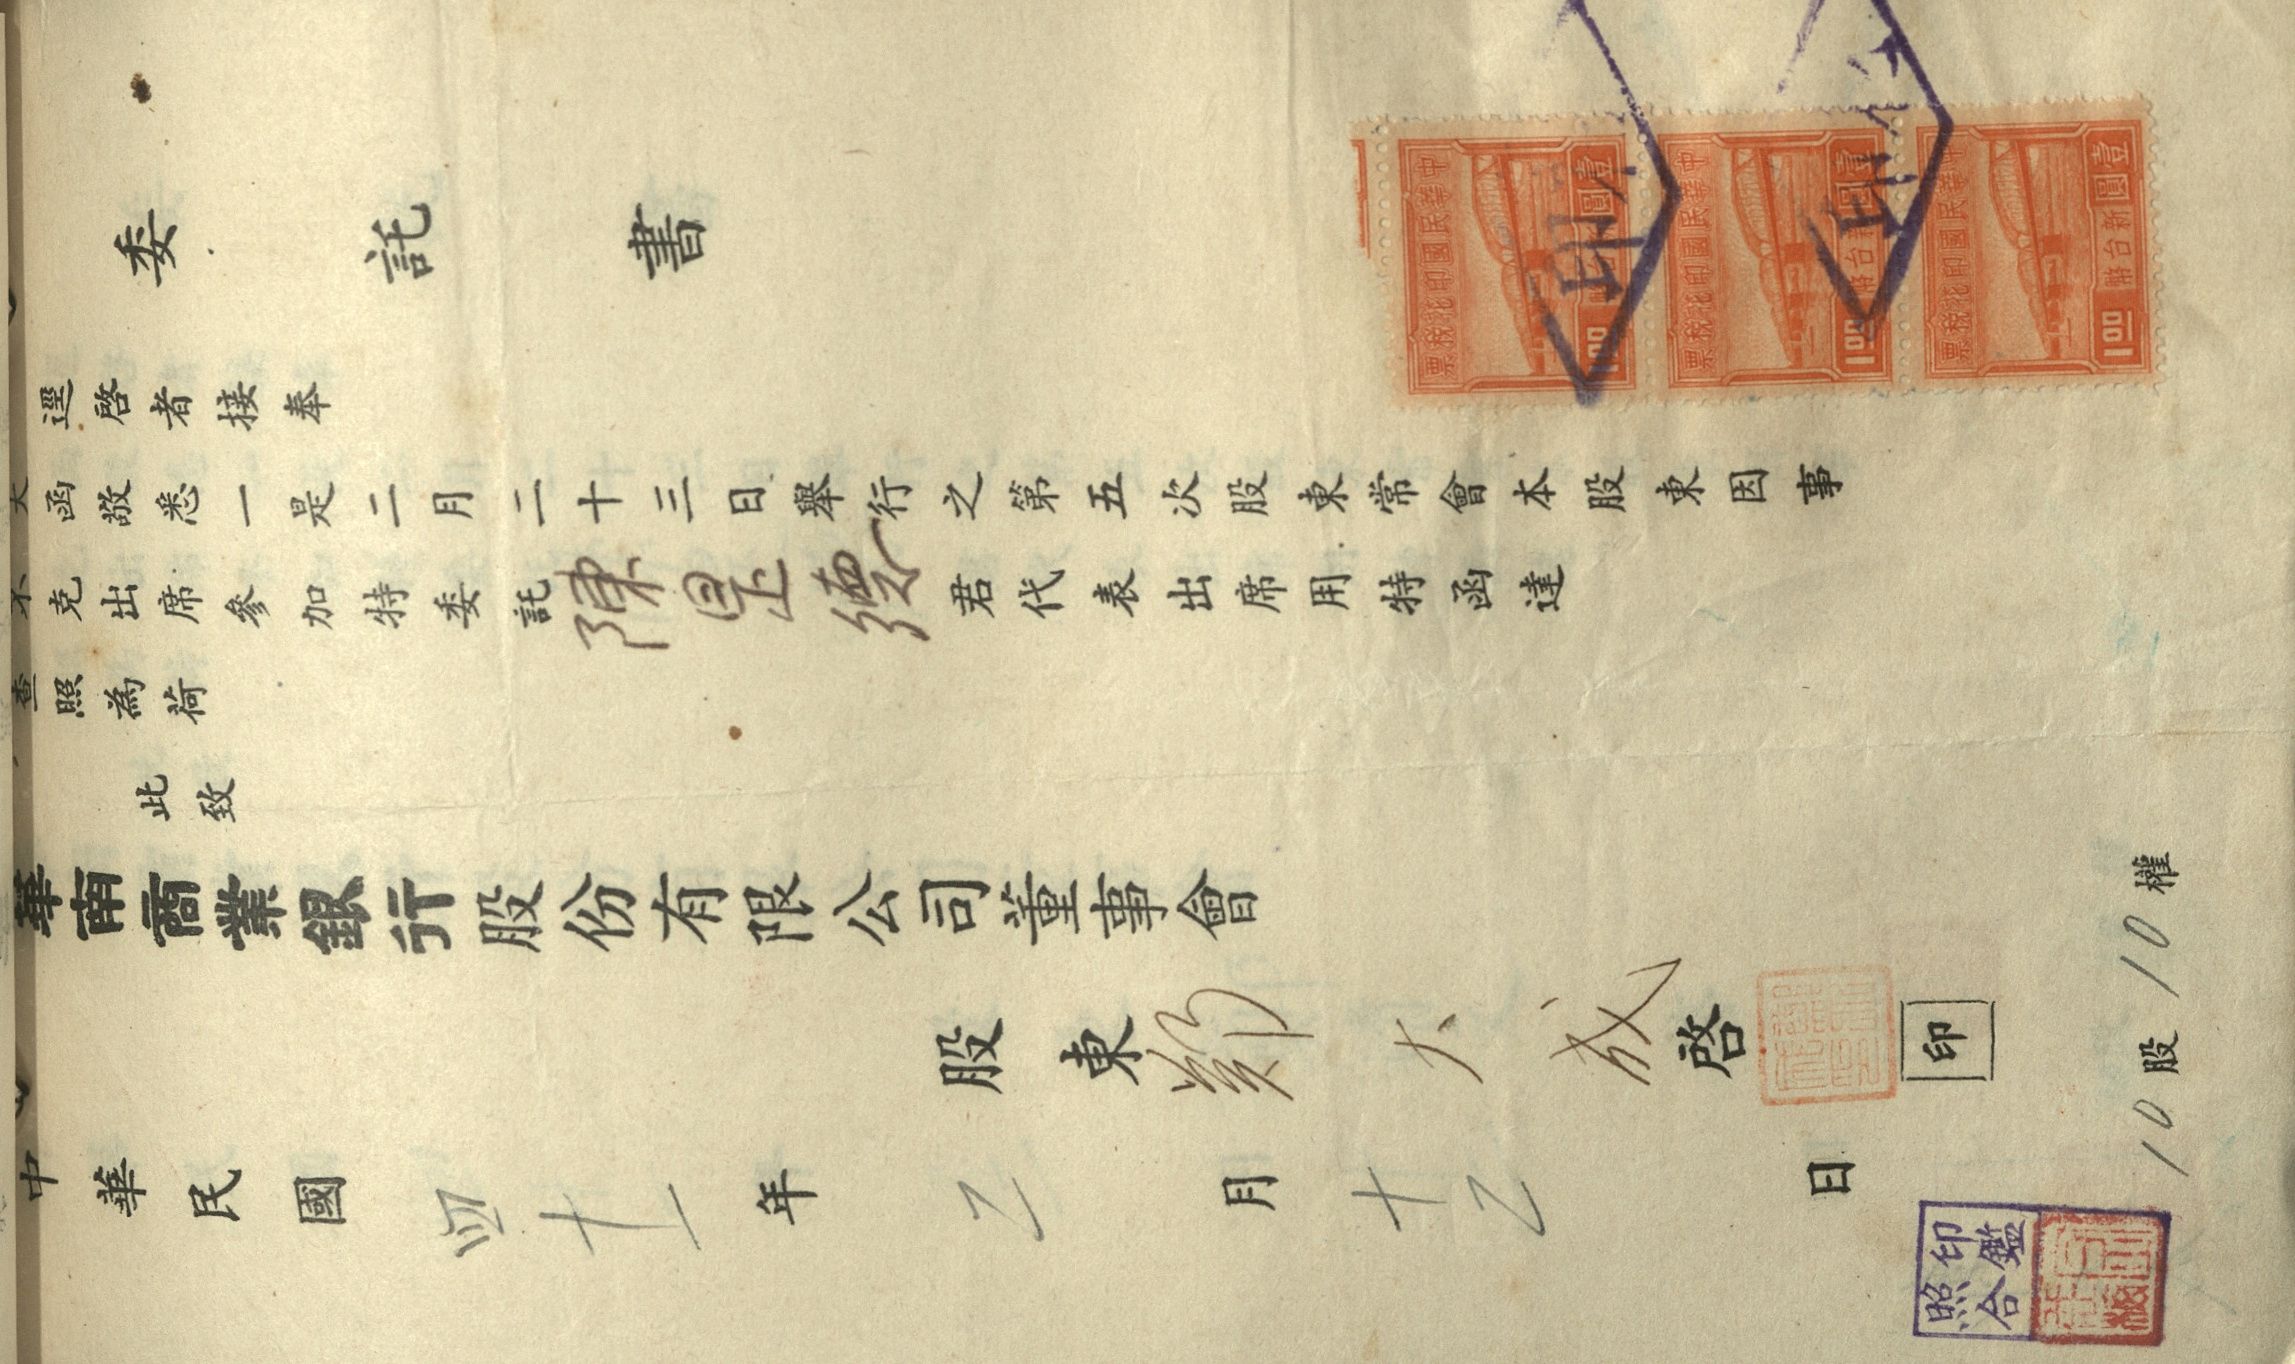 委託書
逕啓者接奉
大函敬悉一是二月二十三日舉行之第五次股東常會本股東因事
不克出席參加特委託陳是德君代表出席用特函達
查照為荷
此致
華南商業銀行股份有限公司董事會
股東鄭大成啓
印
中華民國四十一年乙月十乙日
10股10權
印鑑
照合
中華民國印花稅票
壹圓
新台幣
1.00
中華民國印花稅票
壹圓
新台幣
1.00
中華民國印花稅票
壹圓
新台幣
1.00